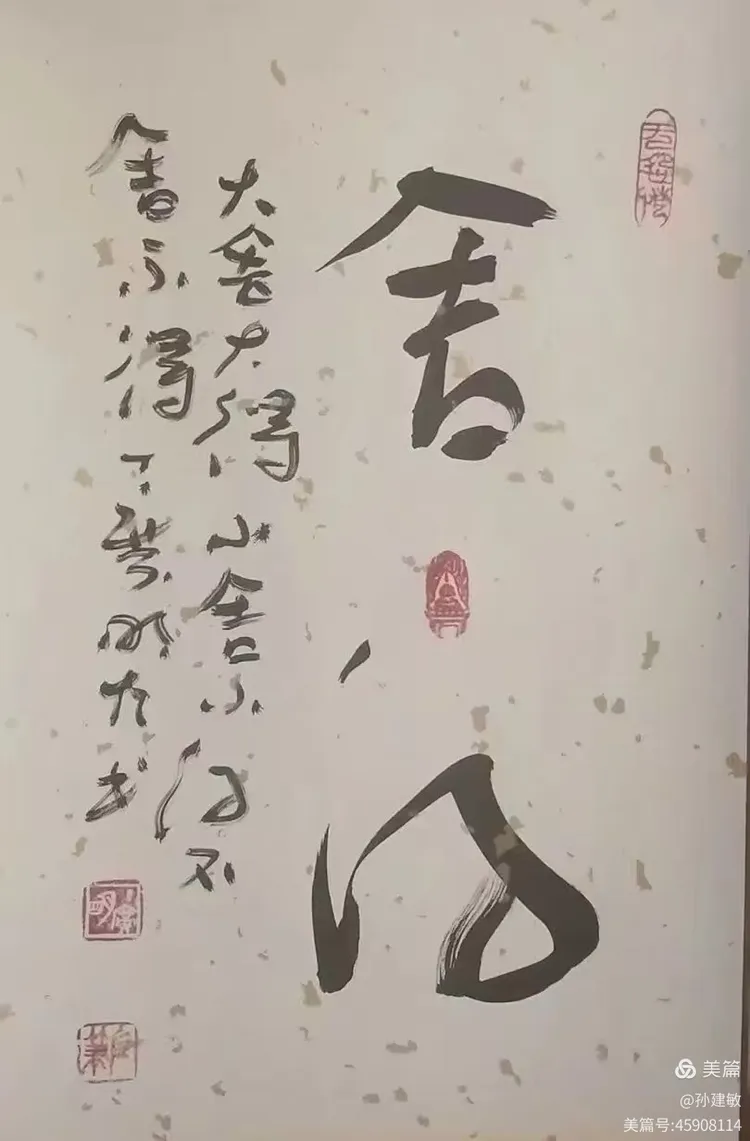 舍得
大舍大得小舍小得不
舍不得
美篇
@孙建敏
美篇号:45908114